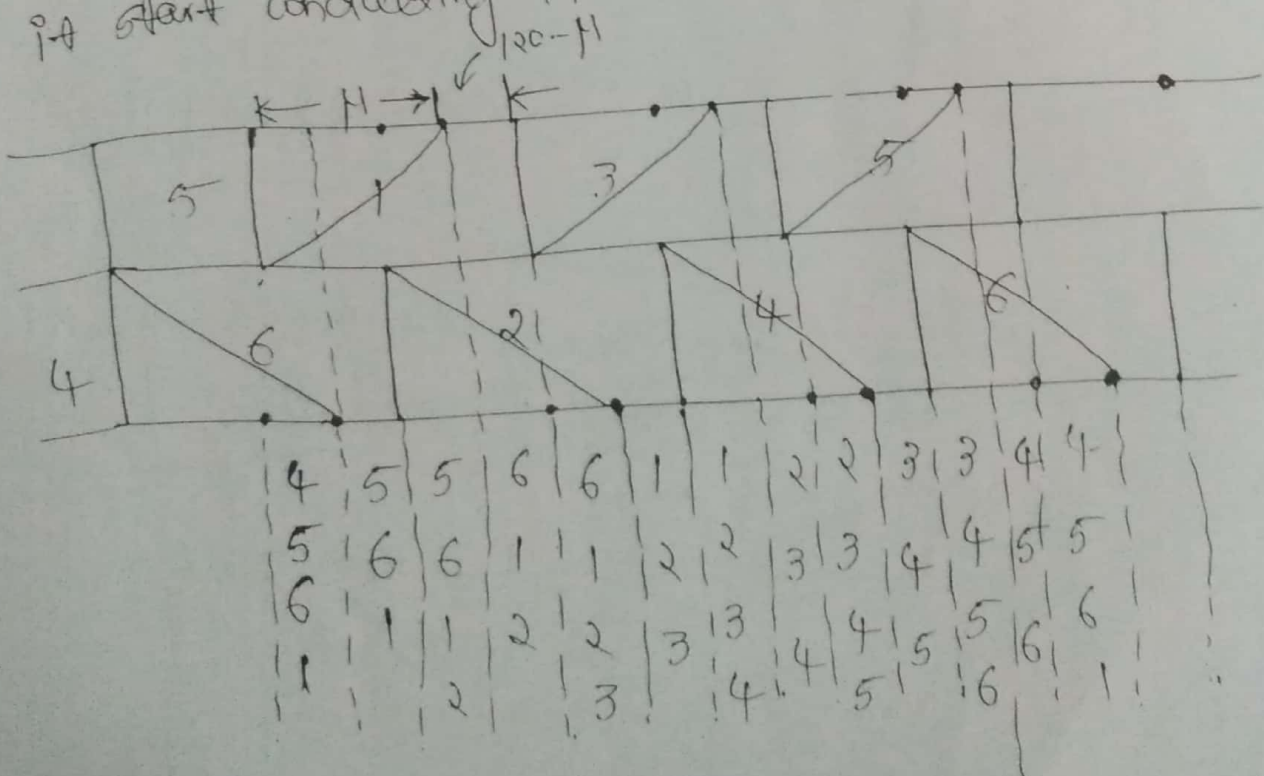 it start conducting
120-μ
μ
5 1 3 5
4 6 2 4 6
4 5 5 6 6 1 1 2 2 3 3 4 4
5 6 6 1 1 2 2 3 3 4 4 5 5
6 1 1 2 2 3 3 4 4 5 5 6 6
1 2 3 4 5 6 1